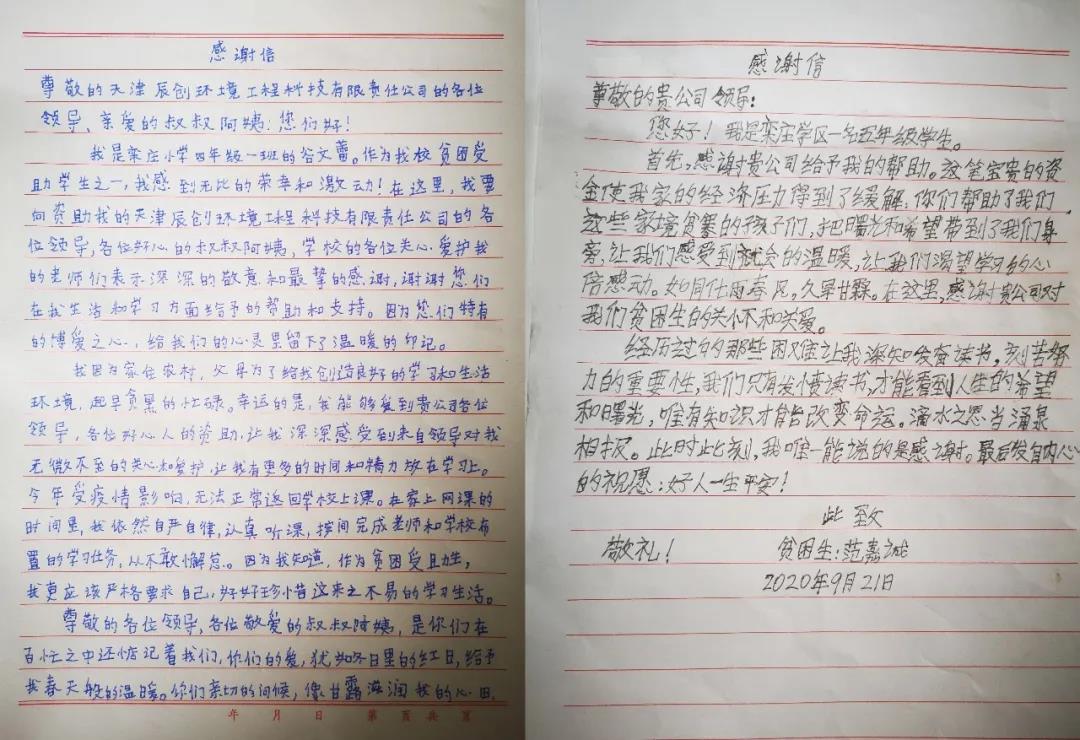 感谢信
尊敬的天津辰创环境工程科技有限责任公司的各位
领导、亲爱的叔叔阿姨：您们好！
我是栾庄小学四年级一班的谷文蕾。作为我校贫困受
助学生之一，我感到无比的荣幸和激动！在这里，我要
向资助我的天津辰创环境工程科技有限责任公司的各
位领导，各位好心的叔叔阿姨，学校的各位关心爱护我
的老师们表示深深的敬意和最挚的感谢，谢谢您们
在我生活和学习方面给予的赞助和支持。因为您们特有
的博爱之心，给我们的心灵里留下了温暖的印记。
我因为家住农村，父母为了给我创造良好的学习和生活
环境，起早贪黑的忙碌。幸运的是，我能够爱到贵公司各位
领导，各位好心人的资助，让我深深感受到来自领导对我
无微不至的关心和爱护，让我有更多的时间和精力放在学习上。
今年受疫情影响，无法正常返回学校上课。在家上网课的
时间里，我依然自严自律，认真听课，按间完成老师和学校布
置的学习任务，从不敢懈怠。因为我知道，作为贫困受助生，
我更应该严格要求自己，好好珍惜这来之不易的学习生活。
尊敬的各位领导，各位敬爱的叔叔阿姨，是你们在
百忙之中还惦记着我们，你们的爱，犹如冬日里的红日，给予
我春天般的温暖。你们亲切的问候，像甘露滋润我的心田，
年 月 日 第 页共 页
感谢信
尊敬的贵公司领导：
您好！我是栾庄学区一名五年级学生。
首先，感谢贵公司给予我的帮助。这笔宝贵的资
金使我家的经济压力得到了缓解，你们帮助了我们
这些家境贫寒的孩子们，把曙光和希望带到了我们身
旁，让我们感受到社会的温暖，让我们渴望学习的心
倍感动。如同仕雨春风，久旱甘霖。在这里，感谢贵公司对
我们贫困生的关怀和关爱。
经历过的那些困难让我深知发奋读书，刻苦努
力的重要性，我们只有发愤读书，才能看到人生的希望
和曙光，唯有知识才能改变命运。滴水之恩当涌泉
相报。此时此刻，我唯一能说的是感谢。最后发自内心
的祝愿：好人一生平安！
此致
敬礼！ 贫困生：范嘉诚
2020年9月21日